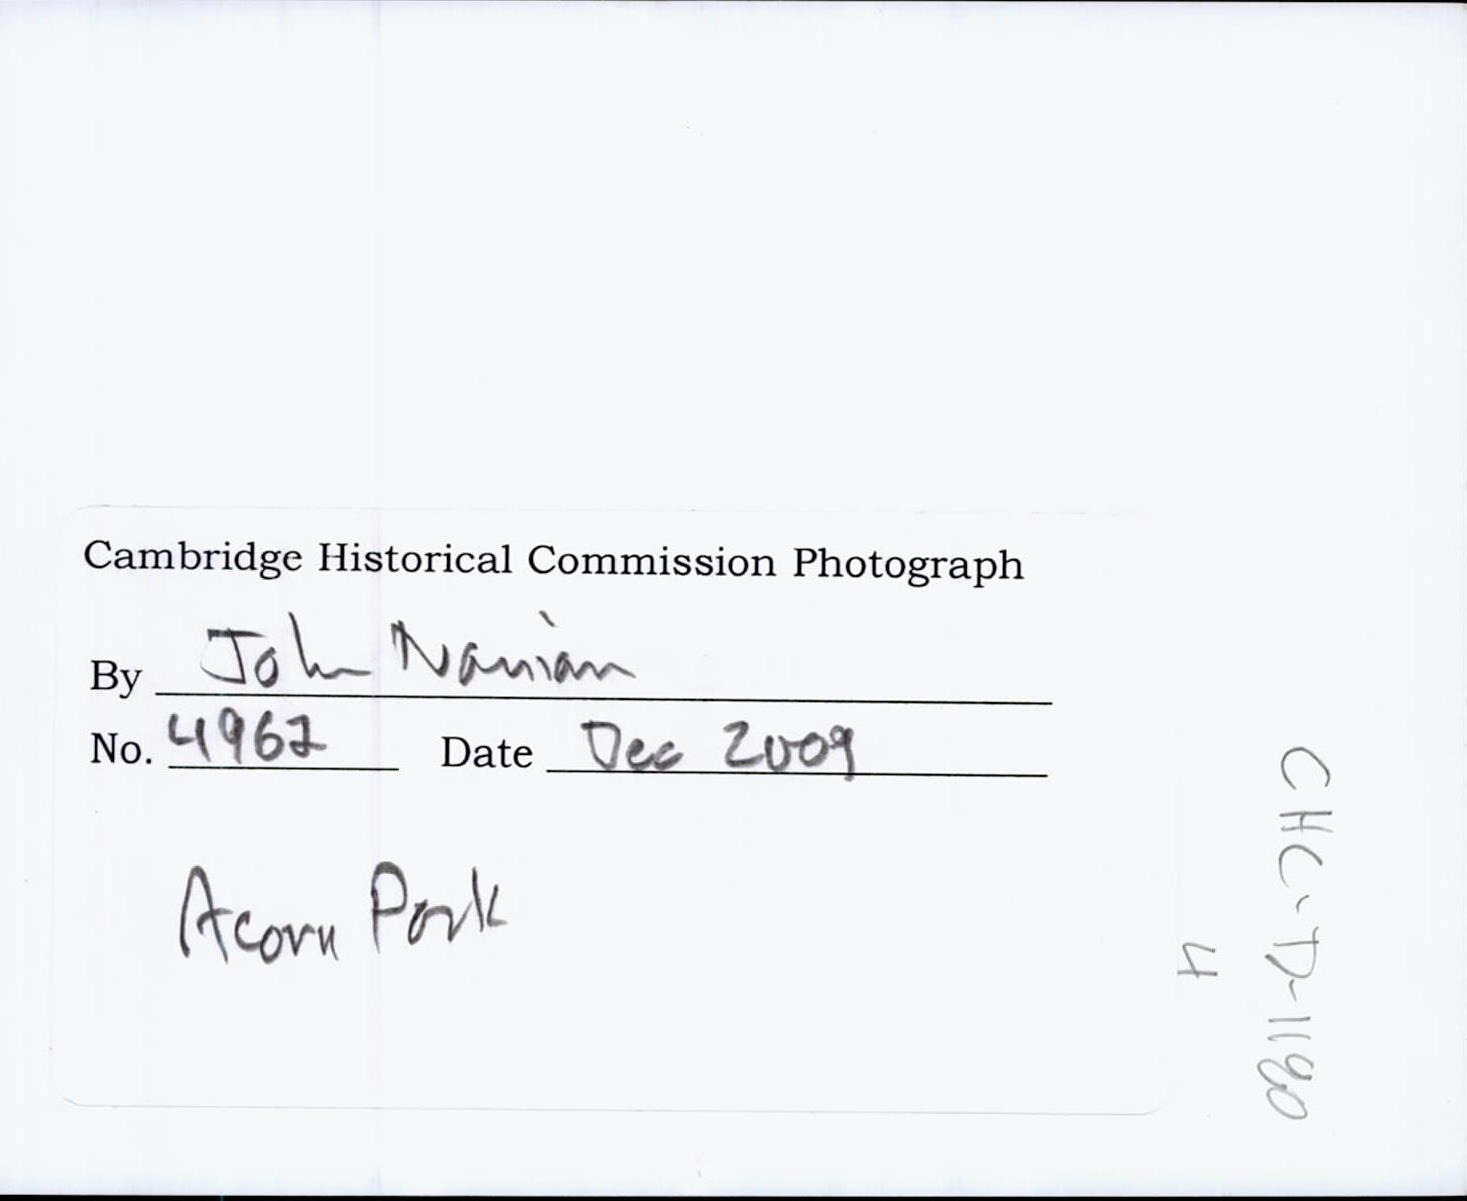 Cambridge Historical Commission Photograph
By John Nanian
No. 4962 Date Dec 2009
Acorn Park
CHC-D-1180
4